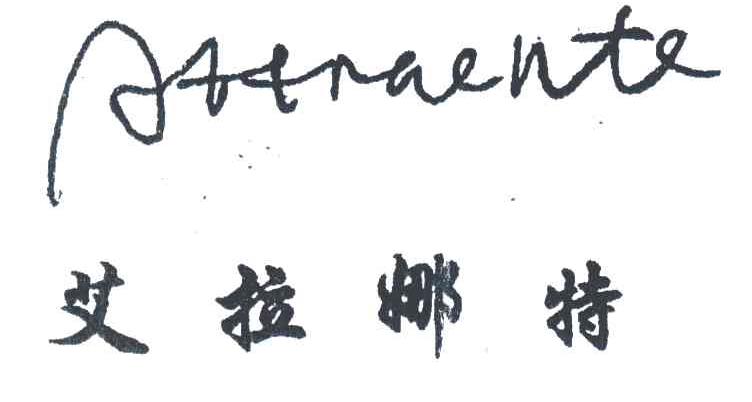 Atraente
艾拉娜特